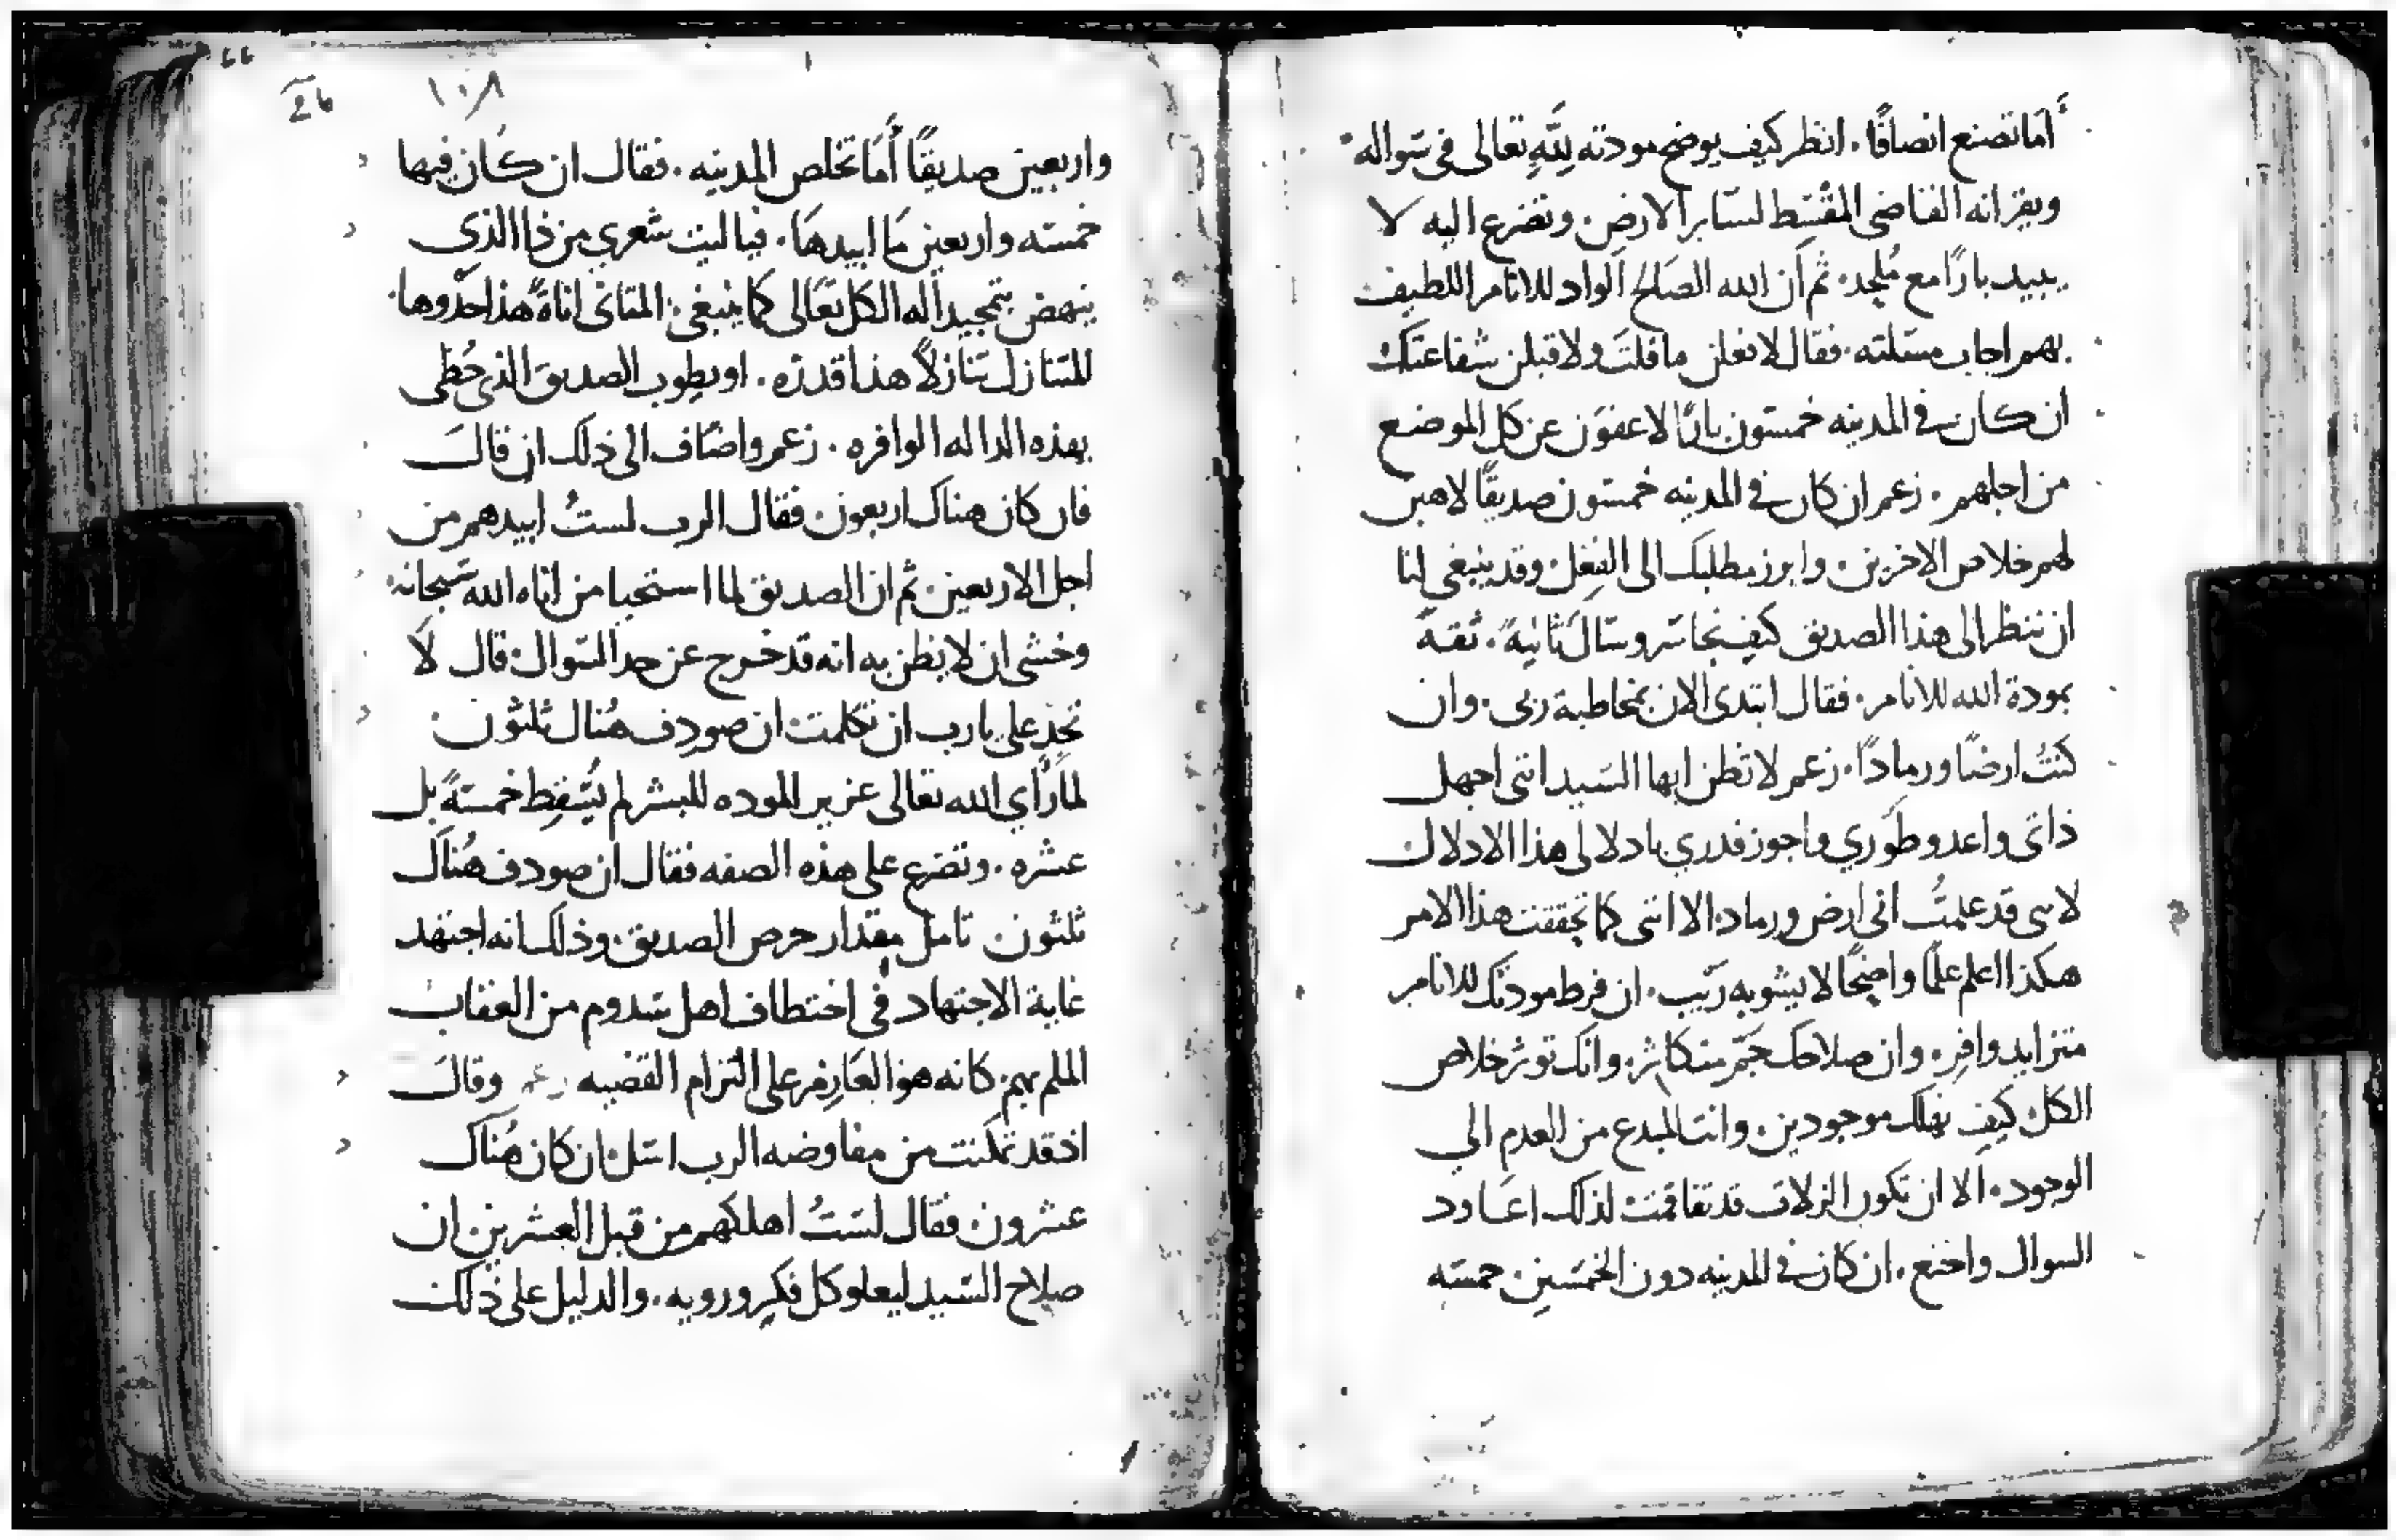 أما تصنع انصافًا. انظر كيف يوضح مودته لله تعالى في سواله
ويقر انه القاضي المقسط لساير الارض. وتضرع اليه لا
يبيد بارًا مع مُلحد. ثم أن الله الصالح الواد للانام اللطيف
بهم اجاب مسلته. فقال لافعلن ما قلتَ ولاقبلن شفاعتك
ان كان في المدينه خمسون بارًا لاعفوَن عن كل الموضع
من اجلهم. زعم ان كان في المدينه خمسون صديقًا لاهبن
لهم خلاص الاخرين. وابرز مطلبك الى الفعل. وقد ينبغي لنا
ان ننظر الى هذا الصديق كيف تجاسر وسال ثانيةً. ثقة
بمودة الله للانام. فقال ابتدى الان بمخاطبة ربي. وان
كنتُ ارضًا ورمادًا. زعم لا تظن ايها السيد انني اجهل
ذاتي واعدو طوري واجوز قدري بادلالي هذا الادلال
لانني قد علمتُ اني ارض ورماد. الا انني كما تحققت هذا الامر
هكذا اعلم علمًا واضحًا لا يشوبه ريب. ان فرط مودتك للانام
متزايد وافر. وان صلاحك جم متكاثر. وانك توثر خلاص
الكل كيف تهلك موجودين. وانت المبدع من العدم الي
الوجود. الا ان تكون الزلات قد تفاقمت لذلك اعاود
السوال واخنع. ان كان في المدينه دون الخمسين خمسه
١٠٨
26
واربعين صديقًا أما تخلص المدينه. فقال ان كان فيها
خمسه واربعين ما ابيدها. فيا ليت شعري من ذا الذي
ينهض بتمجيد اله الكل تعالى كما ينبغي. المتانى اناةً هذا حدوها.
المتنازل تنازلاً هذا قدره. او يطوب الصديق الذي حُظي
بهذه الداله الوافره. زعم واضاف الى ذلك ان قال
فان كان هناك اربعون. فقال الرب لستُ ابيدهم من
اجل الاربعين. ثم ان الصديق لما استحيا من اناه الله سبحانه
وخشى ان لا يظن به انه قد خرج عن حد السوال. قال لا
تجد علي يا رب ان تكلمت. ان صودف هُناك ثلثون
لما رأي الله تعالى عزير الموده للبشر لم يُسقط خمسةً بل
عشره. وتضرع على هذه الصفه فقال ان صودف هُناك
ثلثون تامل مقدار حرص الصديق. وذلك انه اجتهد
غاية الاجتهاد في اختطاف اهل سدوم من العقاب
الملم بهم. كانه هو العارم على التزام القضيه زعم وقال
اذ قد تمكنت من مفاوضه الرب اسل. ان كان هُناك
عشرون. فقال لستُ اهلكهم من قبل العشرين. ان
صلاح السيد ليعلو كل فكر ورويه. والدليل على ذلك